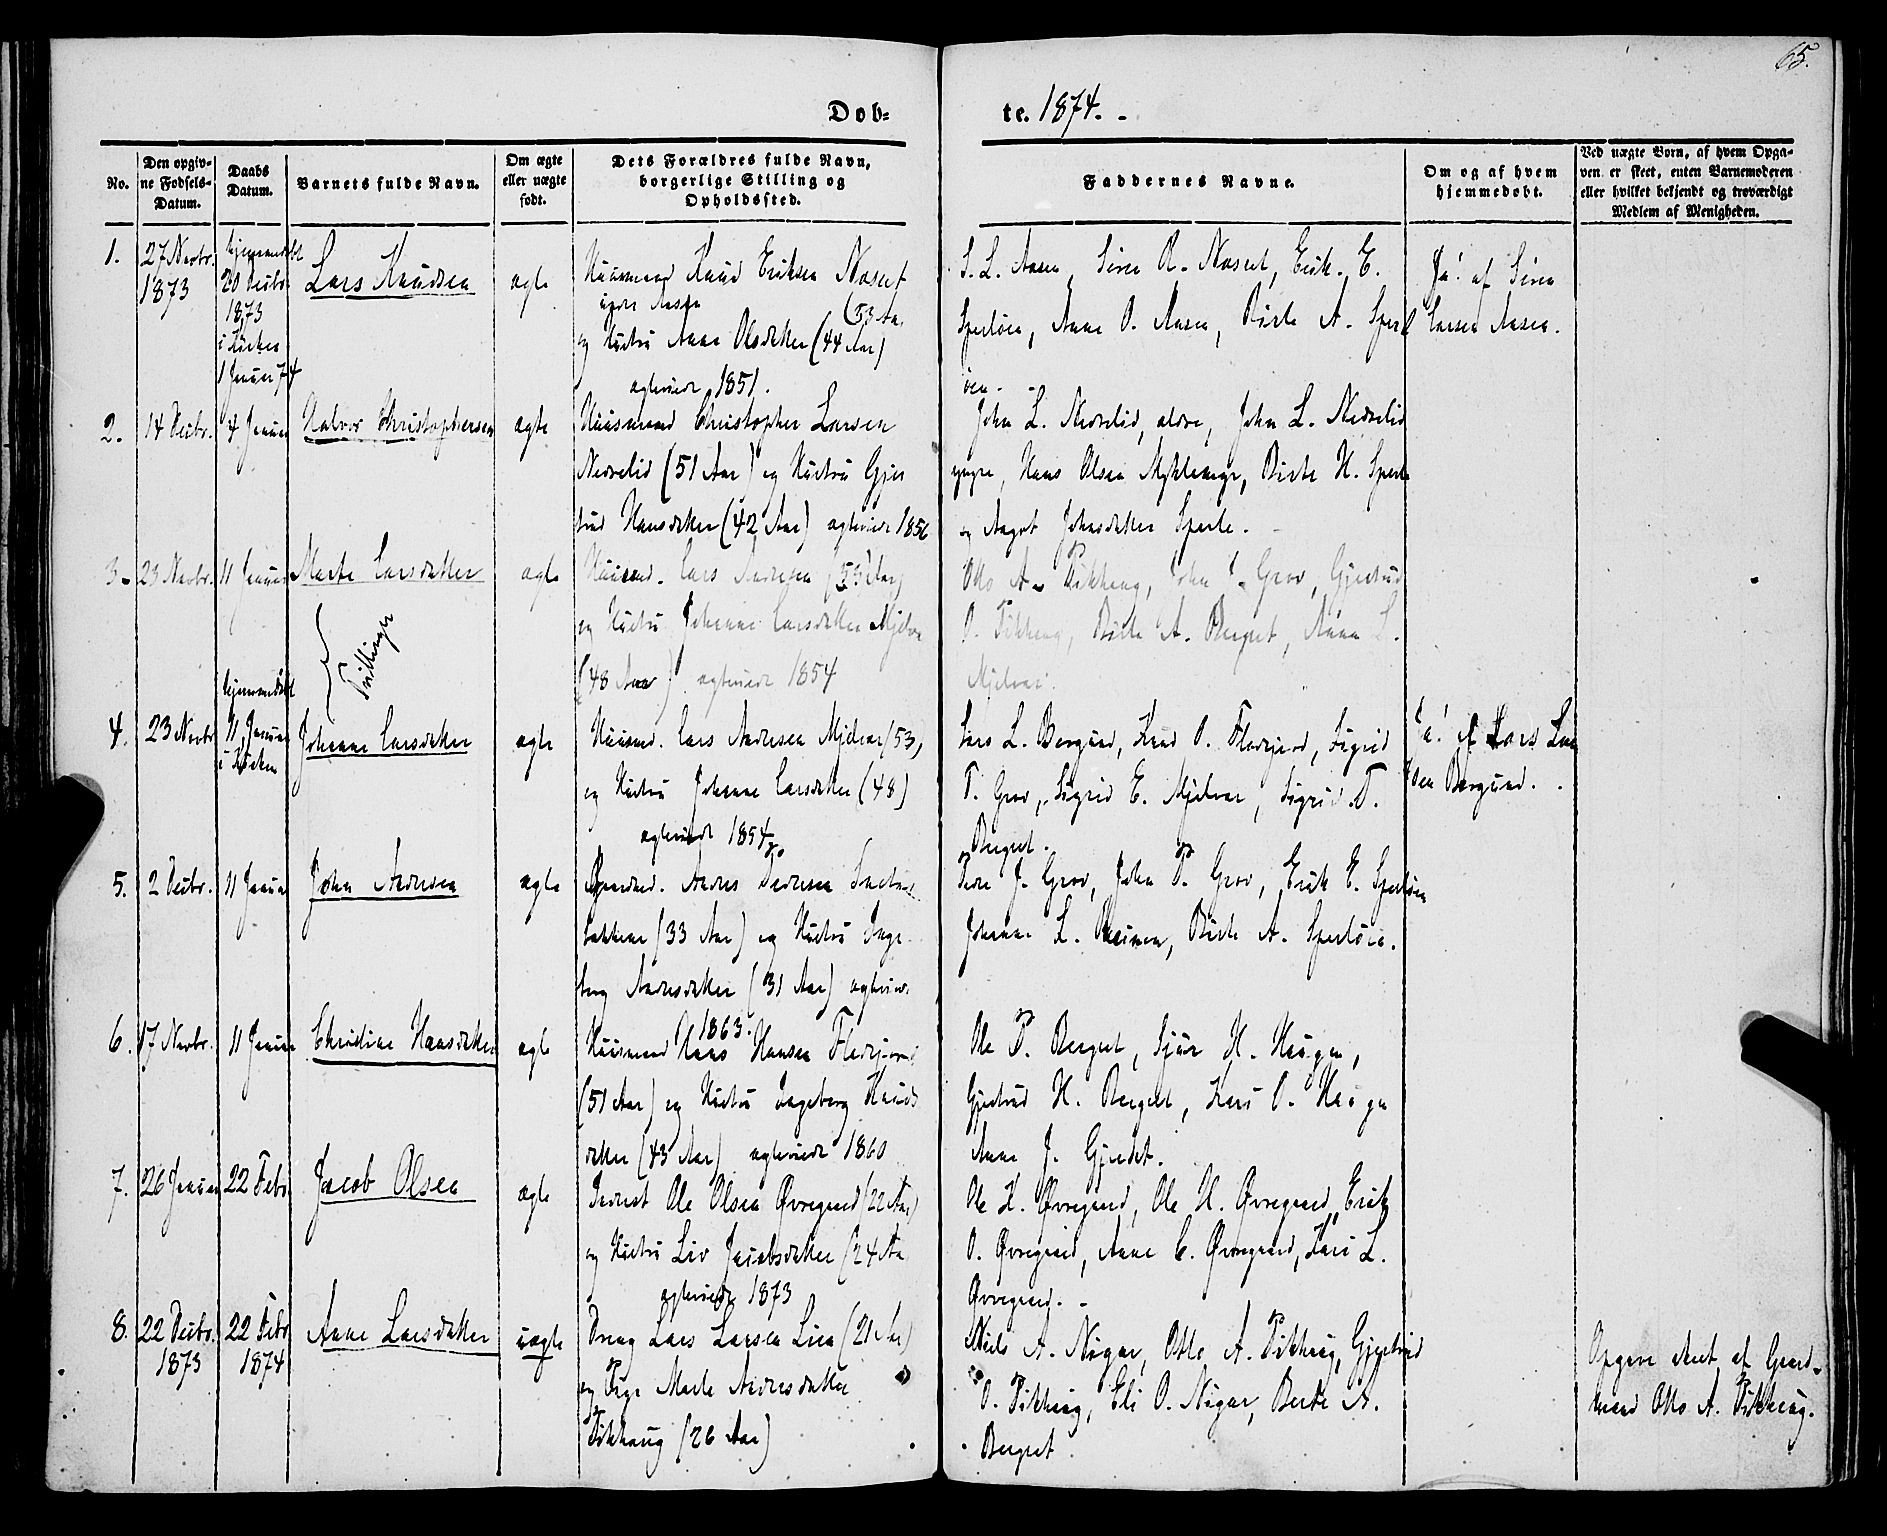 65.
Døb-
te. 1874. -
No.
Den opgiv-
ne Fødsels-
Datum.
Daabs
Datum.
Barnets fulde Navn.
Om ægte
eller uægte
født.
Dets Forældres fulde Navn,
borgerlige Stilling og
Opholdssted.
Faddernes Navne.
Om og af hvem
hjemmedøbt.
Ved uægte Børn, af hvem Opga-
ven er skeet, enten Barnemoderen
eller hvilket bekjendt og troværdigt
Medlem af Menigheden.
1.
27 Novbr.
1873
hjemmedøbt
20 Decbr
1873
i Kirken
1 Januar 74
Lars Knudsen
ægte
Huusmand Knud Eriksen Naset
under Aasen (53 Aa.
og Hustru Anne Olsdatter (44 Aar)
ægteviede 1851.
S. L. Aasen, Siren K. Naset, Erik E.
Sperløen, Anne O. Aasen, Birte A. Sperl
øen. -
Ja! af Siren
Larsen Aasen.
2.
14 Decbr.
4 Januar
Halvor Christophersen
ægte
Huusmand Christopher Larsen
Nedrelid (51 Aar) og Hustru Gjer
trud Hansdatter (42 Aar) ægteviede 1856
John L. Nedrelid, ældre, John L. Nedrelid
yngre, Hans Olsen Myklemyr, Birte H. Sperle
og Aagot Johnsdatter Sperle. -
3.
23 Novbr.
11 Januar
Marte Larsdatter
ægte
Huusmd. Lars Andersen (53 Aar)
og Hustru Johanne Larsdatter Mjelvar
(48 Aar) ægteviede 1854
Otto A. Pikhaug, John J. Grov, Gjertrud
O. Pikhaug, Birte A. Berget, Anna L.
Mjelvar.
Tvillinger
4.
23 Novbr
hjemmedøbt
11 Januar
i Kirken
Johanne Larsdatter
ægte
Huusmd. Lars Andersen Mjelvar (53)
og Hustru Johanne Larsdatter (48)
ægteviede 1854
Lars L. Bergund, Knud O. Flatejord, Sigrid
T. Grov, Sigrid E. Mjelvar, Sigrid T.
Berget.
Ja! af Lars Lar
sen Bergund.
5.
2 Decbr.
11 Januar
John Andersen
ægte
Gaardmd. Anders Pedersen
(33 Aar) og Hustru Inge-
borg Andersdatter (31 Aar) ægteviede
1863.
Peder J. Grov, John P. Grov, Erik E. Sperløen
Johanne L., Birte A. Sperløen.
6.
17 Novbr.
11 Januar
Christine Hansdatter
ægte
Huusmand Hans Hansen Flatejord
(51 Aar) og Hustru Ingeborg Knuds
datter (43 Aar) ægteviede 1860
Ole P. Berget, Sjur H. Haugen,
Gjertrud H. Berget, Kari O. Haugen
Anne J. Gjerdet.
7.
26 Januar
22 Febr
Jacob Olsen
ægte
Inderst Ole Olsen Øvregaard (22 Aar)
og Hustru Liv Jacobsdatter (24 Aa
ægteviede 1873
Ole K. Øvregaard, Ole H. Øvregaard, Erik
O. Øvregaard, Anne C. Øvregaard, Kari L.
Øvregaard. -
8.
22 Decbr.
1873
22 Febr
1874
Anne Larsdatter
uægte
Dreng Lars Larsen Lien (21 Aar)
og Pige Marte Andersdatter
Pikhaug (26 Aar)
Niels A. Nigar, Otto A. Pikhaug, Gjertrud
O. Pikhaug, Eli O. Nigar, Berte A.
Berget.
Opgave skeet af Gaard-
mand Otto A. Pikhaug.